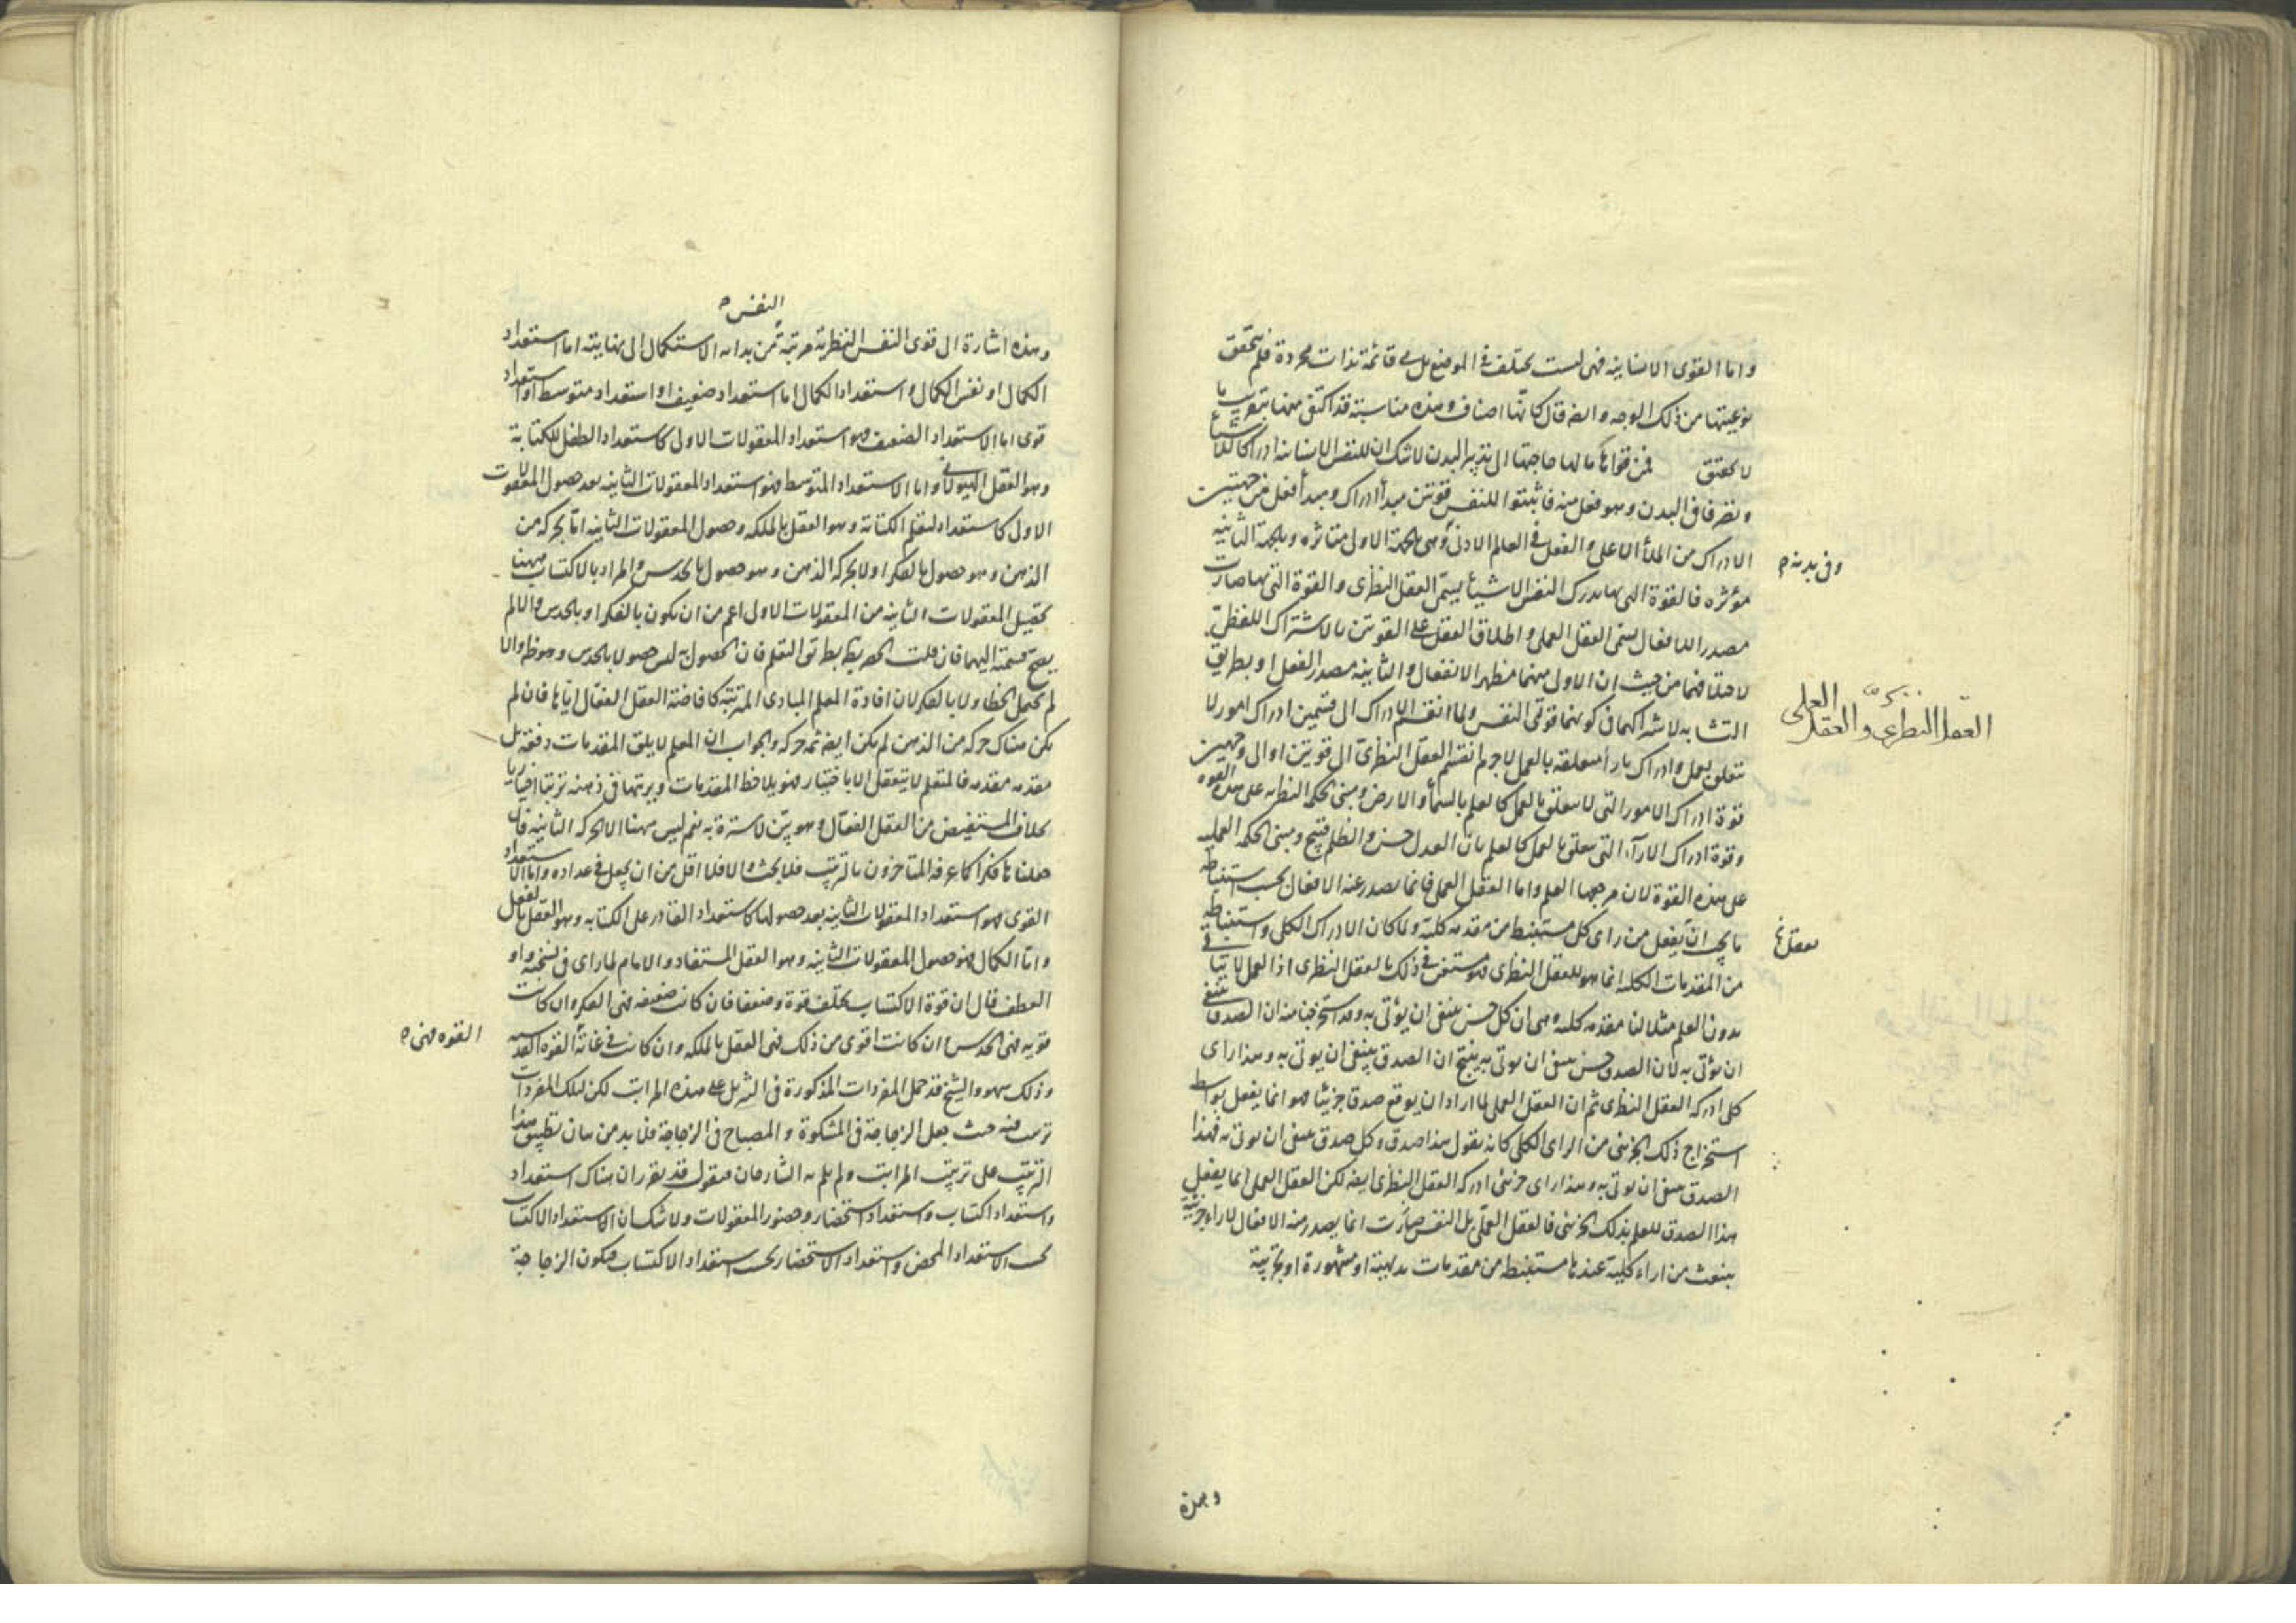 واما القوى الانسانية فهى ليست تختلف فى الموضع بل هى قائمة بذات مجردة فلم يتحقق
نوعيتها من ذلك الوجه والضه قال كانها اصناف وهذه مناسبة قد اكتفى بها بتعريف ما
لا يتحقق فمن قواها ما لها حاجتها الى تدبير البدن لا شك ان للنفس الانسانية ادراكا للاشياء
وتصرفا فى البدن وهو فعل منه فاثبتوا للنفس قوتين مبدأ ادراك ومبدأ فعل فمن جهتين
الادراك من الملأ الاعلى والفعل فى العالم الادنى وهى بالجهة الاولى متاثرة وبالجهة الثانية
وفى بدنه
مؤثره فالقوة التى بها تدرك النفس الاشياء يسمى العقل النظرى والقوة التى بها صارت
مصدر الافعال يسمى العقل العملى واطلاق العقل على القوتين بالاشتراك اللفظى
لاختلافهما من حيث ان الاولى منهما مظهر الانفعال والثانية مصدر الفعل او بطريق
العقل النظرى والعقل العملى
التشابه لاشتراكهما فى كونهما قوتى النفس ولما انقسم الادراك الى قسمين ادراك امور لا
تتعلق بعمل وادراك باراء متعلقة بالعمل لاجرم انقسم العقل النظرى الى قوتين او الى وجهين
قوة ادراك الامور التى لا تتعلق بالعمل كالعلم بالسماء والارض ومبنى الحكمة النظرية على هذه القوة
وقوة ادراك الاراء التى تتعلق بالعمل كالعلم بان العدل حسن والظلم قبيح ومبنى الحكمة العملية
على هذه القوة لان مرجعها العلم واما العقل العملى فانما يصدر عنه الافعال بحسب استنباط
ما يجب ان يفعل من راى كلى مستنبط من مقدمة كلية ولما كان الادراك الكلى واستنباطه
من المقدمات الكلية انما هو للعقل النظرى فهو مستعن فى ذلك بالعقل النظرى اذ العمل لا يتاتى
بدون العلم مثلا لنا مقدمة كلية وهى ان كل حسن ينبغى ان يؤتى به وقد استخرجنا منه ان الصدق ينبغى
ان يؤتى به لان الصدق حسن ينبغى ان يؤتى به ينتج ان الصدق ينبغى ان يؤتى به وهذا راى
كلى ادركه العقل النظرى ثم ان العقل العملى لما اراد ان يوقع صدقا جزئيا فهو انما يفعل بواسطة
استخراج ذلك الجزئى من الراى الكلى كانه يقول هذا صدق وكل صدق ينبغى ان يؤتى به فهذا
الصدق ينبغى ان يؤتى به وهذا راى جزئى ادركه العقل النظرى ايضه لكن العقل العملى انما يفعل
هذا الصدق للعلم بذلك الجزئى فالعقل العملى بل النفس صارت انما يصدر منه الافعال لاراء جزئية
ينبعث من اراء كلية عندها مستنبط من مقدمات بديهية او مشهورة او تجربية
وهذه
النفس
وهذه اشارة الى قوى النفس النظرية مرتبة من بداية الاستكمال الى نهايته اما استعداد
الكمال او نفس الكمال واستعداد الكمال اما استعداد ضعيف او استعداد متوسط او استعداد
قوى اما الاستعداد الضعيف فهو استعداد المعقولات الاولى كاستعداد الطفل للكتابة
وهو العقل الهيولانى واما الاستعداد المتوسط فهو استعداد المعقولات الثانية بعد حصول المعقولات
الاول كاستعداد لتعلم الكتابة وهو العقل بالملكه وحصول المعقولات الثانية اما بحركة من
الذهن وهو حصول بالفكر او لا بحركة الذهن وهو حصول بالحدس والمراد بالاكتساب ههنا
تحصيل المعقولات الثانية من المعقولات الاول اعم من ان يكون بالفكر او بالحدس والا لم
يصح قسمته اليهما فان قلت الحصر يبطل بطريق التعلم فان الحصول به ليس حصولا بالحدس وهو ظ والا
لم يحتمل الخطا ولا بالفكر لان افادة المعلم المبادى المرتبة كافاضة العقل الفعال اياها فان لم
يكن هناك حركة من الذهن لم يكن ايضه ثمه حركة والجواب ان المعلم لا يلقى المقدمات دفعة بل
مقدمه مقدمه فالمتعلم لا يتعقل الا باختيار فهو يلاحظ المقدمات ويرتبها فى ذهنه ترتيبا اختياريا
بخلاف المستفيض من العقل الفعال وهو بيّن لا سترة به نعم ليس ههنا الا الحركة الثانية فان
جعلناها فكرا كما عرفه المتاخرون بالترتيب فلا بحث والا فلا اقل من ان يجعل فى عداده واما الاستعداد
القوى فهو استعداد المعقولات الثانية بعد حصولها كاستعداد القادر على الكتابه وهو العقل بالفعل
واما الكمال فهو حصول المعقولات الثانية وهو العقل المستفاد والامام لما راى فى نسخته واو
العطف قال ان قوة الاكتساب يختلف قوة وضعفا فان كانت ضعيفة فهى الفكر وان كانت
قويه فهى الحدس وان كانت اقوى من ذلك فهى العقل بالملكه وان كانت فى غاية القوة القدسية
القوه فهى
وذلك سهو والشيخ قد حمل المفردات المذكورة فى التنزيل على هذه المراتب لكن لتلك المفردات
ترتيب فيه حيث جعل الزجاجة فى المشكوة والمصباح فى الزجاجة فلا بد من بيان تطبيق هذا
الترتيب على ترتيب المراتب ولم يلم به الشارحان فنقول قد تقرر ان هناك استعداد
واستعداد اكتساب واستعداد استحضار وحضور المعقولات ولا شك ان الاستعداد الاكتساب
بحسب الاستعداد المحض واستعداد الاستحضار بحسب استعداد الاكتساب فيكون الزجاجة